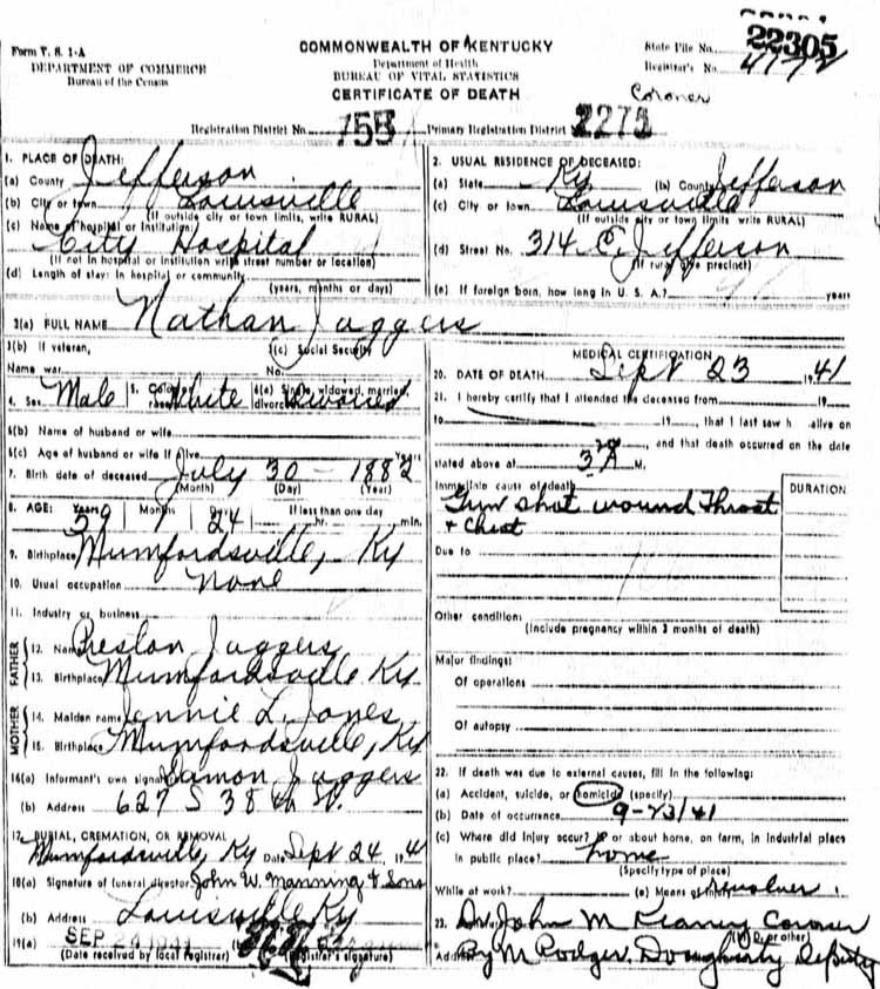 22305
Form V. S. 1-A
COMMONWEALTH OF KENTUCKY
State File No.
DEPARTMENT OF COMMERCE
Department of Health
Registrar's No.
Bureau of the Census
BUREAU OF VITAL STATISTICS
CERTIFICATE OF DEATH
Coroner
Registration District No. 755 Primary Registration District 2275
1. PLACE OF DEATH:
(a) County Jefferson
(b) City or town Louisville
(If outside city or town limits, write RURAL)
(c) Name of hospital or institution:
City Hospital
(If not in hospital or institution write street number or location)
(d) Length of stay: In hospital or community
(years, months or days)
2. USUAL RESIDENCE OF DECEASED:
(a) State Ky (b) County Jefferson
(c) City or town Louisville
(If outside city or town limits write RURAL)
(d) Street No. 314 E. Jefferson
(If rural give precinct)
(e) If foreign born, how long in U. S. A.? years
3(a) FULL NAME Nathan Jaggers
3(b) If veteran, 3(c) Social Security
Name war No.
4. Sex Male 5. Color or race White 6(a) Single, widowed, married, divorced Divorced
6(b) Name of husband or wife
6(c) Age of husband or wife if alive Years
7. Birth date of deceased July 30 - 1882
(Month) (Day) (Year)
8. AGE: Years Months Days If less than one day
59 1 24 hr. min.
9. Birthplace Mumfordsville, Ky
10. Usual occupation none
11. Industry or business
FATHER
12. Name Preston Jaggers
13. Birthplace Mumfordsville Ky
MOTHER
14. Maiden name Jennie L. Jones
15. Birthplace Mumfordsville, Ky
16(a) Informant's own signature Jaggers
(b) Address 627 S 38th St.
17. BURIAL, CREMATION, OR REMOVAL
Mumfordsville, Ky Date Sept 24, 1941
18(a) Signature of funeral director John W. Manning & Sons
(b) Address Louisville Ky
19(a) SEP 24 1941
(Date received by local registrar) (Registrar's signature)
MEDICAL CERTIFICATION
20. DATE OF DEATH Sept 23 1941
21. I hereby certify that I attended the deceased from 19
to 19, that I last saw h alive on
, and that death occurred on the date
stated above at A M.
Immediate cause of death DURATION
Gun shot wound Throat
+ Chest
Due to
Other conditions
(Include pregnancy within 3 months of death)
Major findings:
Of operations
Of autopsy
22. If death was due to external causes, fill in the following:
(a) Accident, suicide, or homicide (specify)
(b) Date of occurrence 9-23/41
(c) Where did injury occur? In or about home, on farm, in industrial place
in public place? home
(Specify type of place)
While at work? (e) Means of Revolver
23. Dr. John M Keaney Coroner
(M. D. or other)
Address By M Rodger Dougherty Deputy